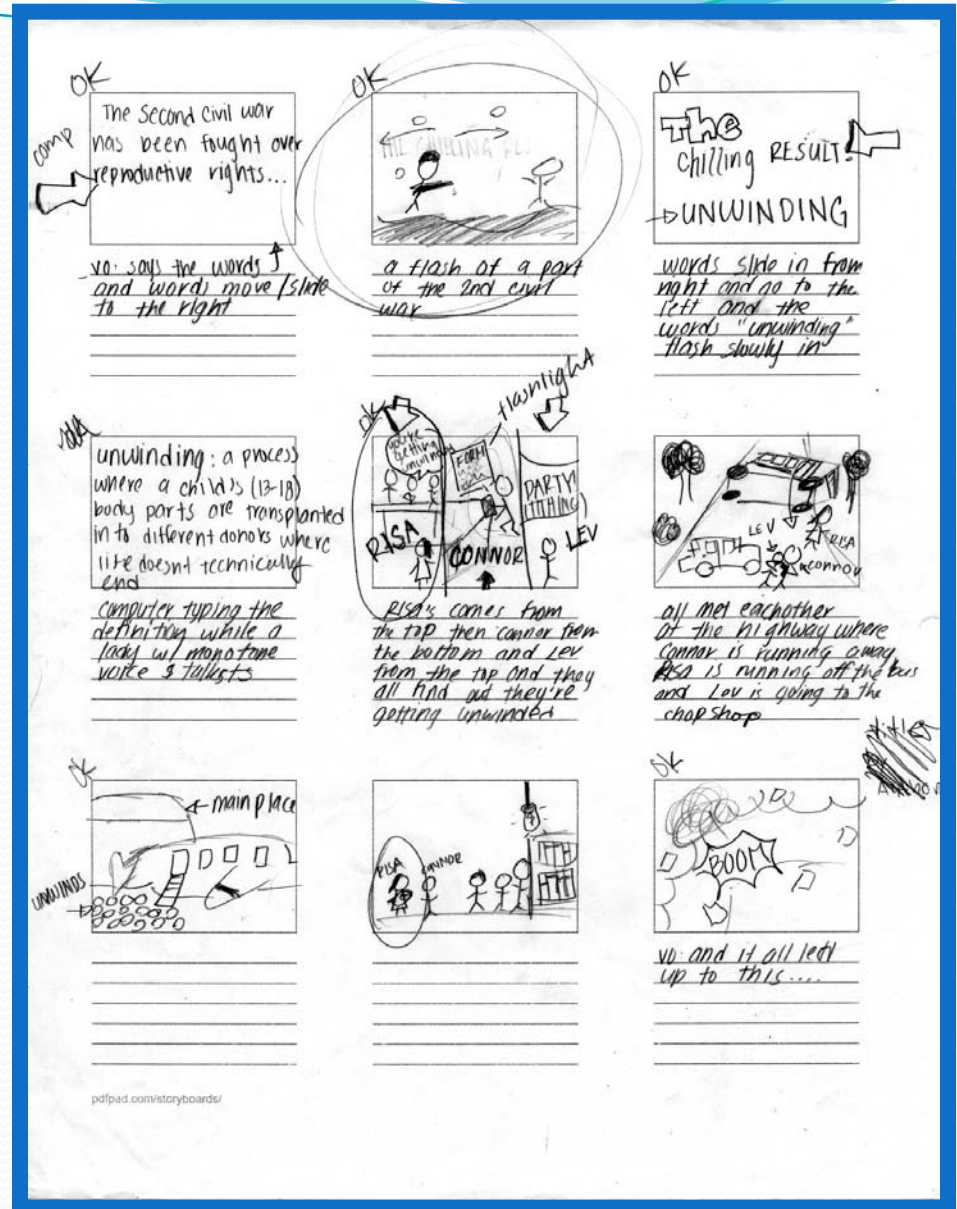 OK
The Second Civil war
has been fought over
reproductive rights...
comp
vo: says the words
and words move/slide
to the right
OK
THE CHILLING
a flash of a part
of the 2nd civil
war
OK
The
chilling RESULT:
UNWINDING
words slide in from
right and go to the
left and the
words "unwinding"
flash slowly in
unwinding: a process
where a child's (13-18)
body parts are transplanted
in to different donors where
life doesnt technically
end
computer typing the
definition while a
lady w/ monotone
voice
OK
flashlight
you're
getting
unwinded
FORM
PARTY!
(TITHING)
RISA
CONNOR
LEV
RISA's comes from
the top then connor from
the bottom and LEV
from the top and they
all find out they're
getting unwinded
LEV
RISA
connor
all met eachother
at the highway where
Connor is running away
RISA is running off the bus
and Lev is going to the
chop shop
OK
main place
UNWINDS
RISA
CONNOR
OK
title
Author
BOOM
vo: and it all led
up to this....
pdfpad.com/storyboards/